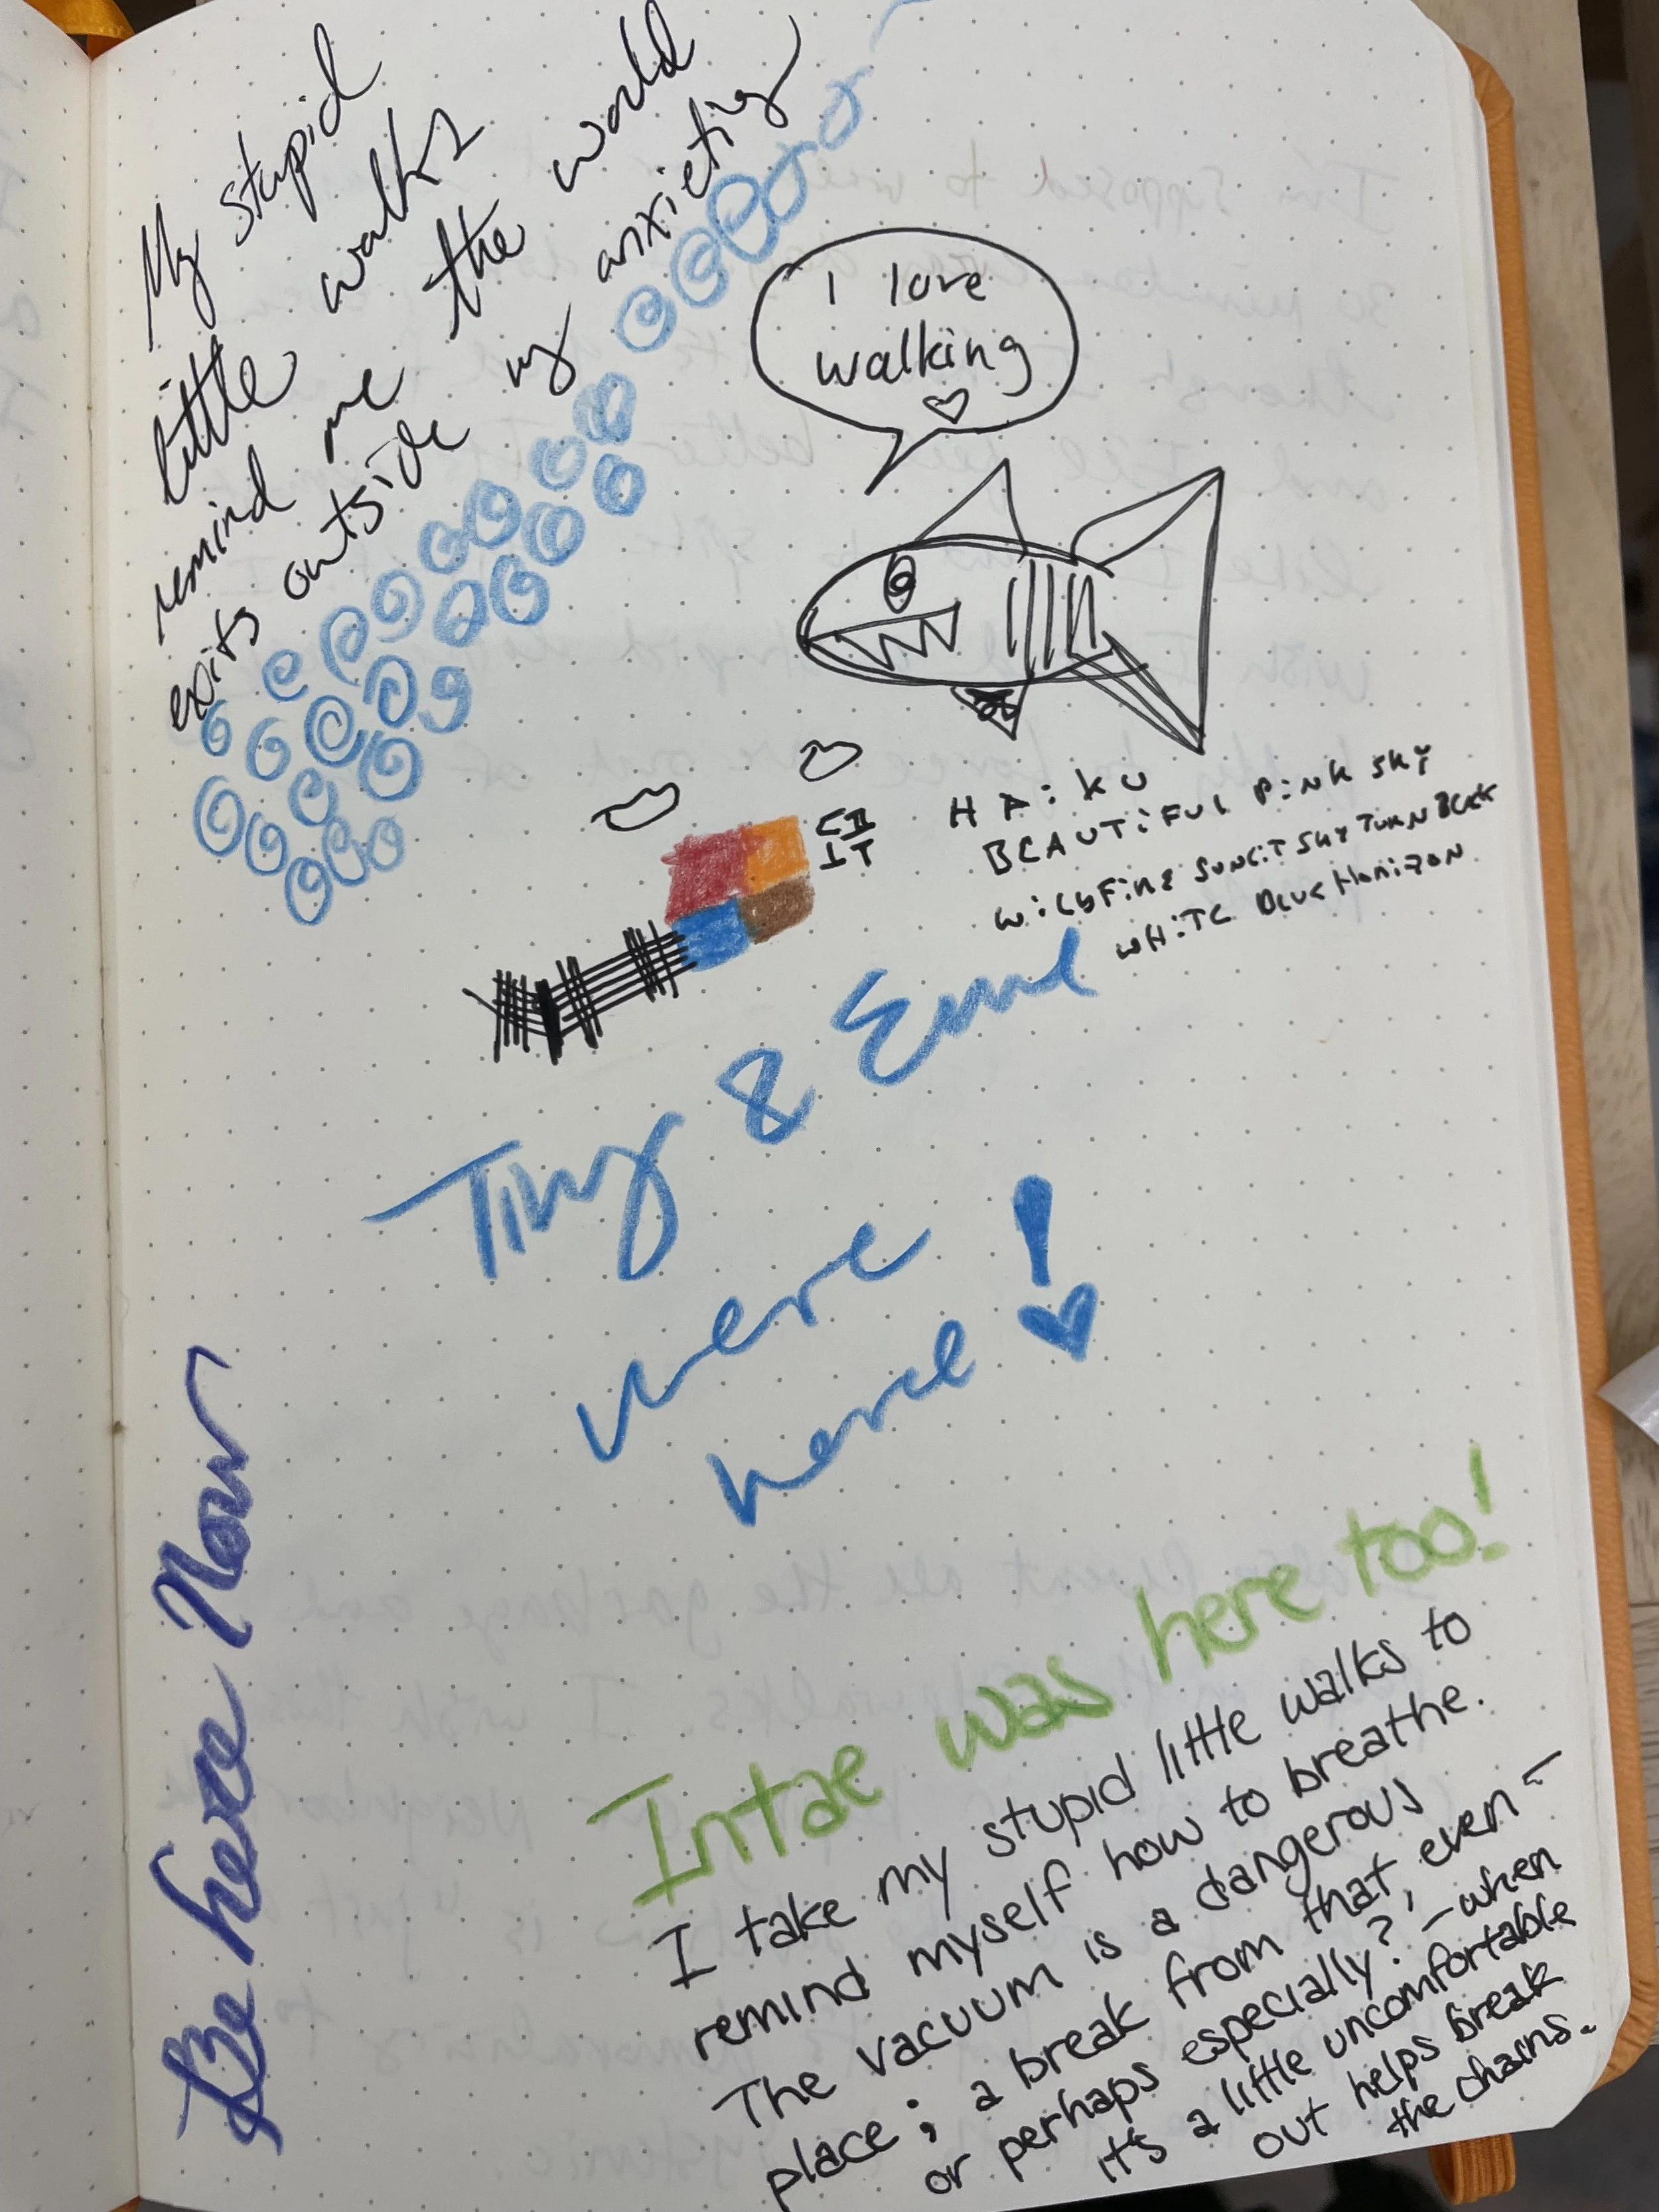 My stupid
little walks
remind me the world
exits outside my anxiety
I love
walking
HAiKU
BEAUTiFUL PiNK SKY
WiLDFiRE SUNSiT SKY TURN BLCK
WHiTE BLUE HORiZON
Tiny & Emel
were
here!
Be here Now
Intae was here too!
I take my stupid little walks to
remind myself how to breathe.
The vacuum is a dangerous
place; a break from that, even –
or perhaps especially? – when
it's a little uncomfortable
out helps break
the chains.